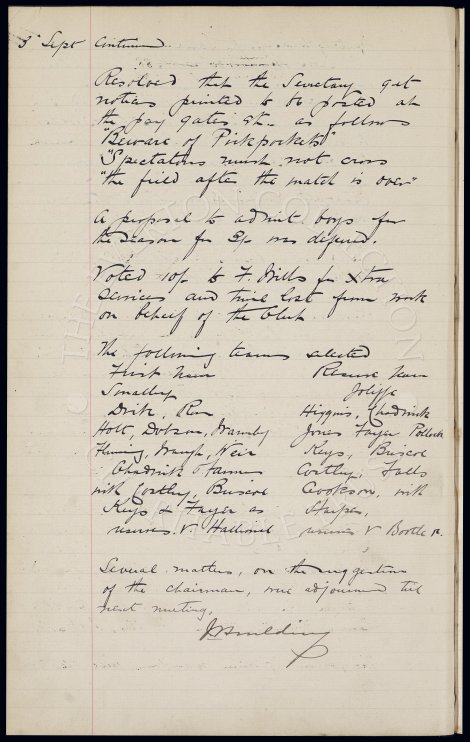 3rd Sept Continued
Resolved that the Secretary get
notices printed to be posted at
the pay gates &c. as follows
"Beware of Pickpockets"
"Spectators must not cross
"the field after the match is over"
A proposal to admit boys for
the season for 2/- was defered.
Voted 10/- to F. Wills for Xtra
services and time lost from work
on behalf of the Club.
The following teams selected
First team Reserve team
Smalley Joliffe
Dick, Ross Higgins, Chadwick
Holt, Dobson, Jones Fayer Pollock
Fleming, Waugh, Weir Keys, Briscoe
Chadwick & Farmer Costley, Falls
with Costley, Briscoe Cookson, with
Keys & Fayer as Harper,
reserves. V Halliwell reserves V Bootle R.
Several matters, on the suggestion
of the chairman, were adjourned till
next meeting.